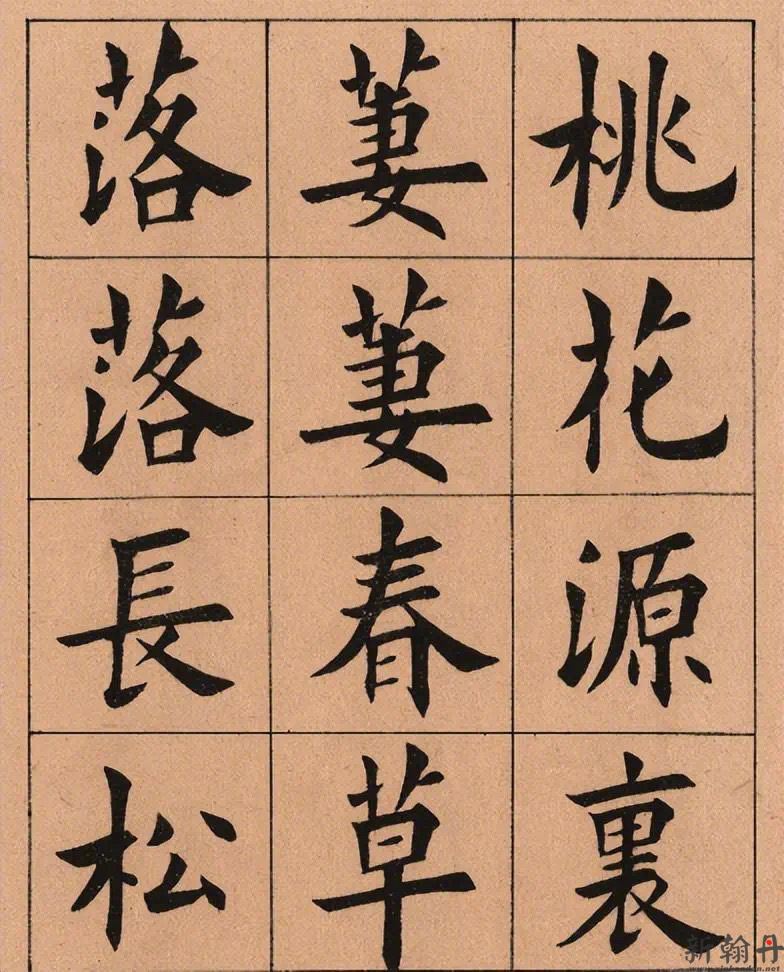 桃花源裏
萋萋春草
落落長松
新翰丹